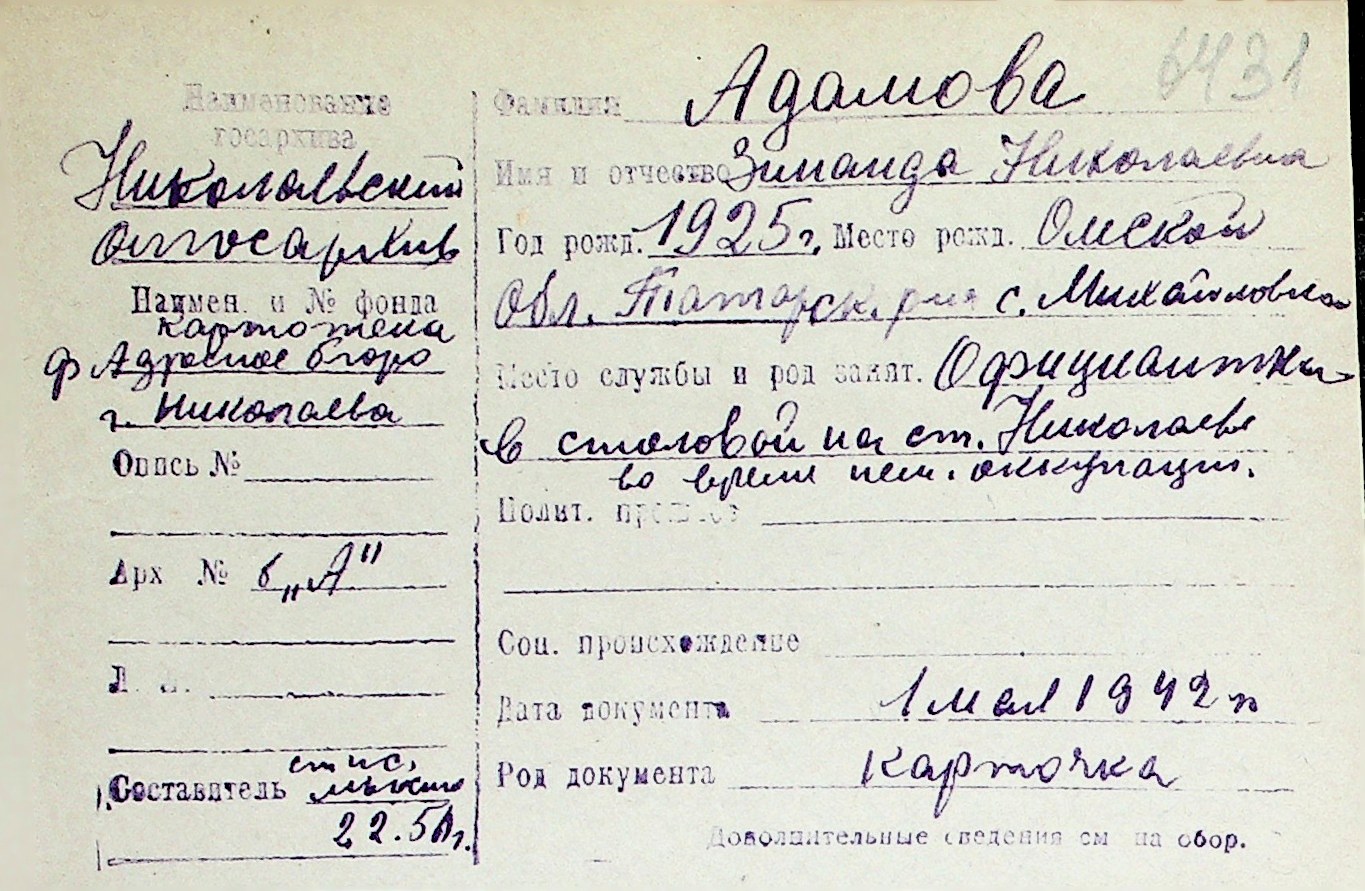 6431
Наименование
госархива
Николаевский
Облгосархив
Наимен. и № фонда
картотека
ф Адресное бюро
г. Николаева
Опись №
Арх № б „А"
Л. Л.
Составитель ст. н.с.
22.5
Фамилия Адамова
Имя и отчество Зинаида Николаевна
Год рожд. 1925 г. Место рожд. Омской
Обл. Татарск. р-на с. Михайловка
Место службы и род занят. Официантка
в столовой на ст. Николаев
во время нем. оккупации.
Полит. прошлое
Соц. происхождение
Дата документа 1 мая 1942 г
Род документа карточка
Дополнительные сведения см на обор.